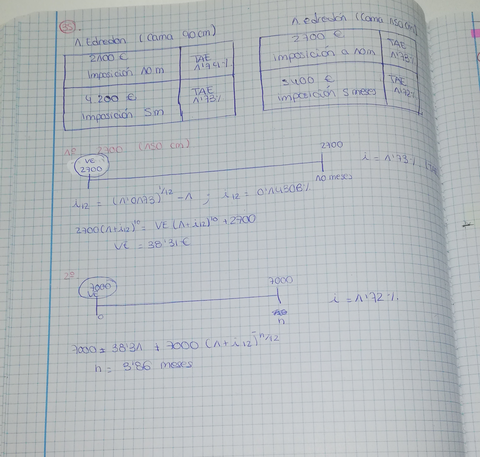 35.
1 Edredón (cama 90cm)
2100 €
imposición 10 m
TAE
4.200 €
imposición 5m
TAE
1'73%
1 edredón (cama 150 cm)
2700 €
imposición a 10m
TAE
1'73%
5400 €
imposición 5 meses
TAE
1'72%
1º. 2700 (150 cm)
VE
2700
2700
10 meses
i = 1'73%
i12 = (1'0173)^1/12 - 1 ; i12 = 0'14306%
2700(1+i12)^10 = VE (1+i12)^10 + 2700
VE = 38'31 €
2º.
7000
VE
7000
0
n
i = 1'72%
7000 = 38'31 + 7000 (1+i12)^-n/12
n = 3'86 meses